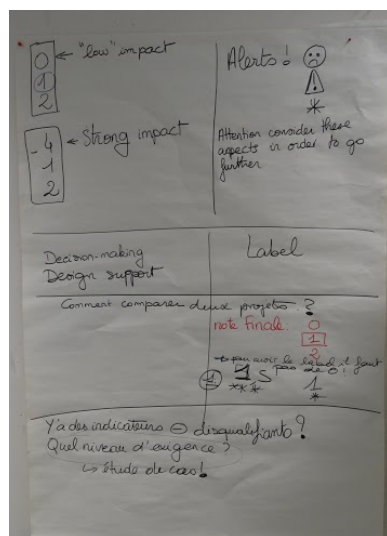 0 ← "low" impact
1
2
- 4 ← Strong impact
1
2
Alerts!
!
*
Attention consider these
aspects in order to go
further
Decision-making
Design support
Label
Comment comparer deux projets ?
note Finale: 0
1
2
→ pour avoir le label il faut
pas de 0!
1
***
1
*
Y'a des indicateurs ⊖ disqualifiants ?
Quel niveau d'exigence ?
↳ étude de cas!